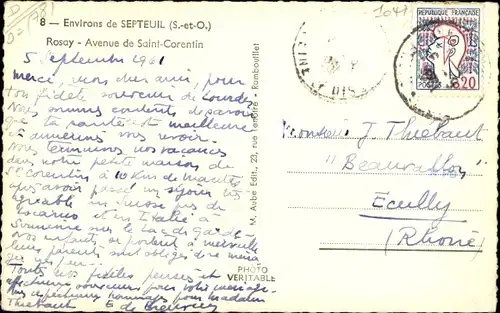 8 — Environs de SEPTEUIL (S.-et-O.)
Rosay - Avenue de Saint-Corentin
5 Septembre 1961
Merci, mon cher ami, pour
ton fidèle souvenir de Lourdes
Nous sommes contents de savoir
que ta santé est meilleure
et aimerions vous revoir.
Nous terminons nos vacances
dans notre petite maison de
St Corentin à 10 Km de Mantes
après avoir passé un séjour
agréable en Suisse près de
Locarno et en Italie à
Sirmione sur le Lac de Garde
Nos enfants se portent à merveille
leurs parents sont obligés de
Toutes nos fidèles pensées et
affectueux souvenirs pour votre ménage.
hommages pour madame
Thiébaut
M. Aubé Édit., 23, rue Lenôtre - Rambouillet
PHOTO
VÉRITABLE
1041
REPUBLIQUE FRANÇAISE
POSTES 0,20
Monsieur J Thiébaut
"Beauvallon"
Ecully
(Rhône)